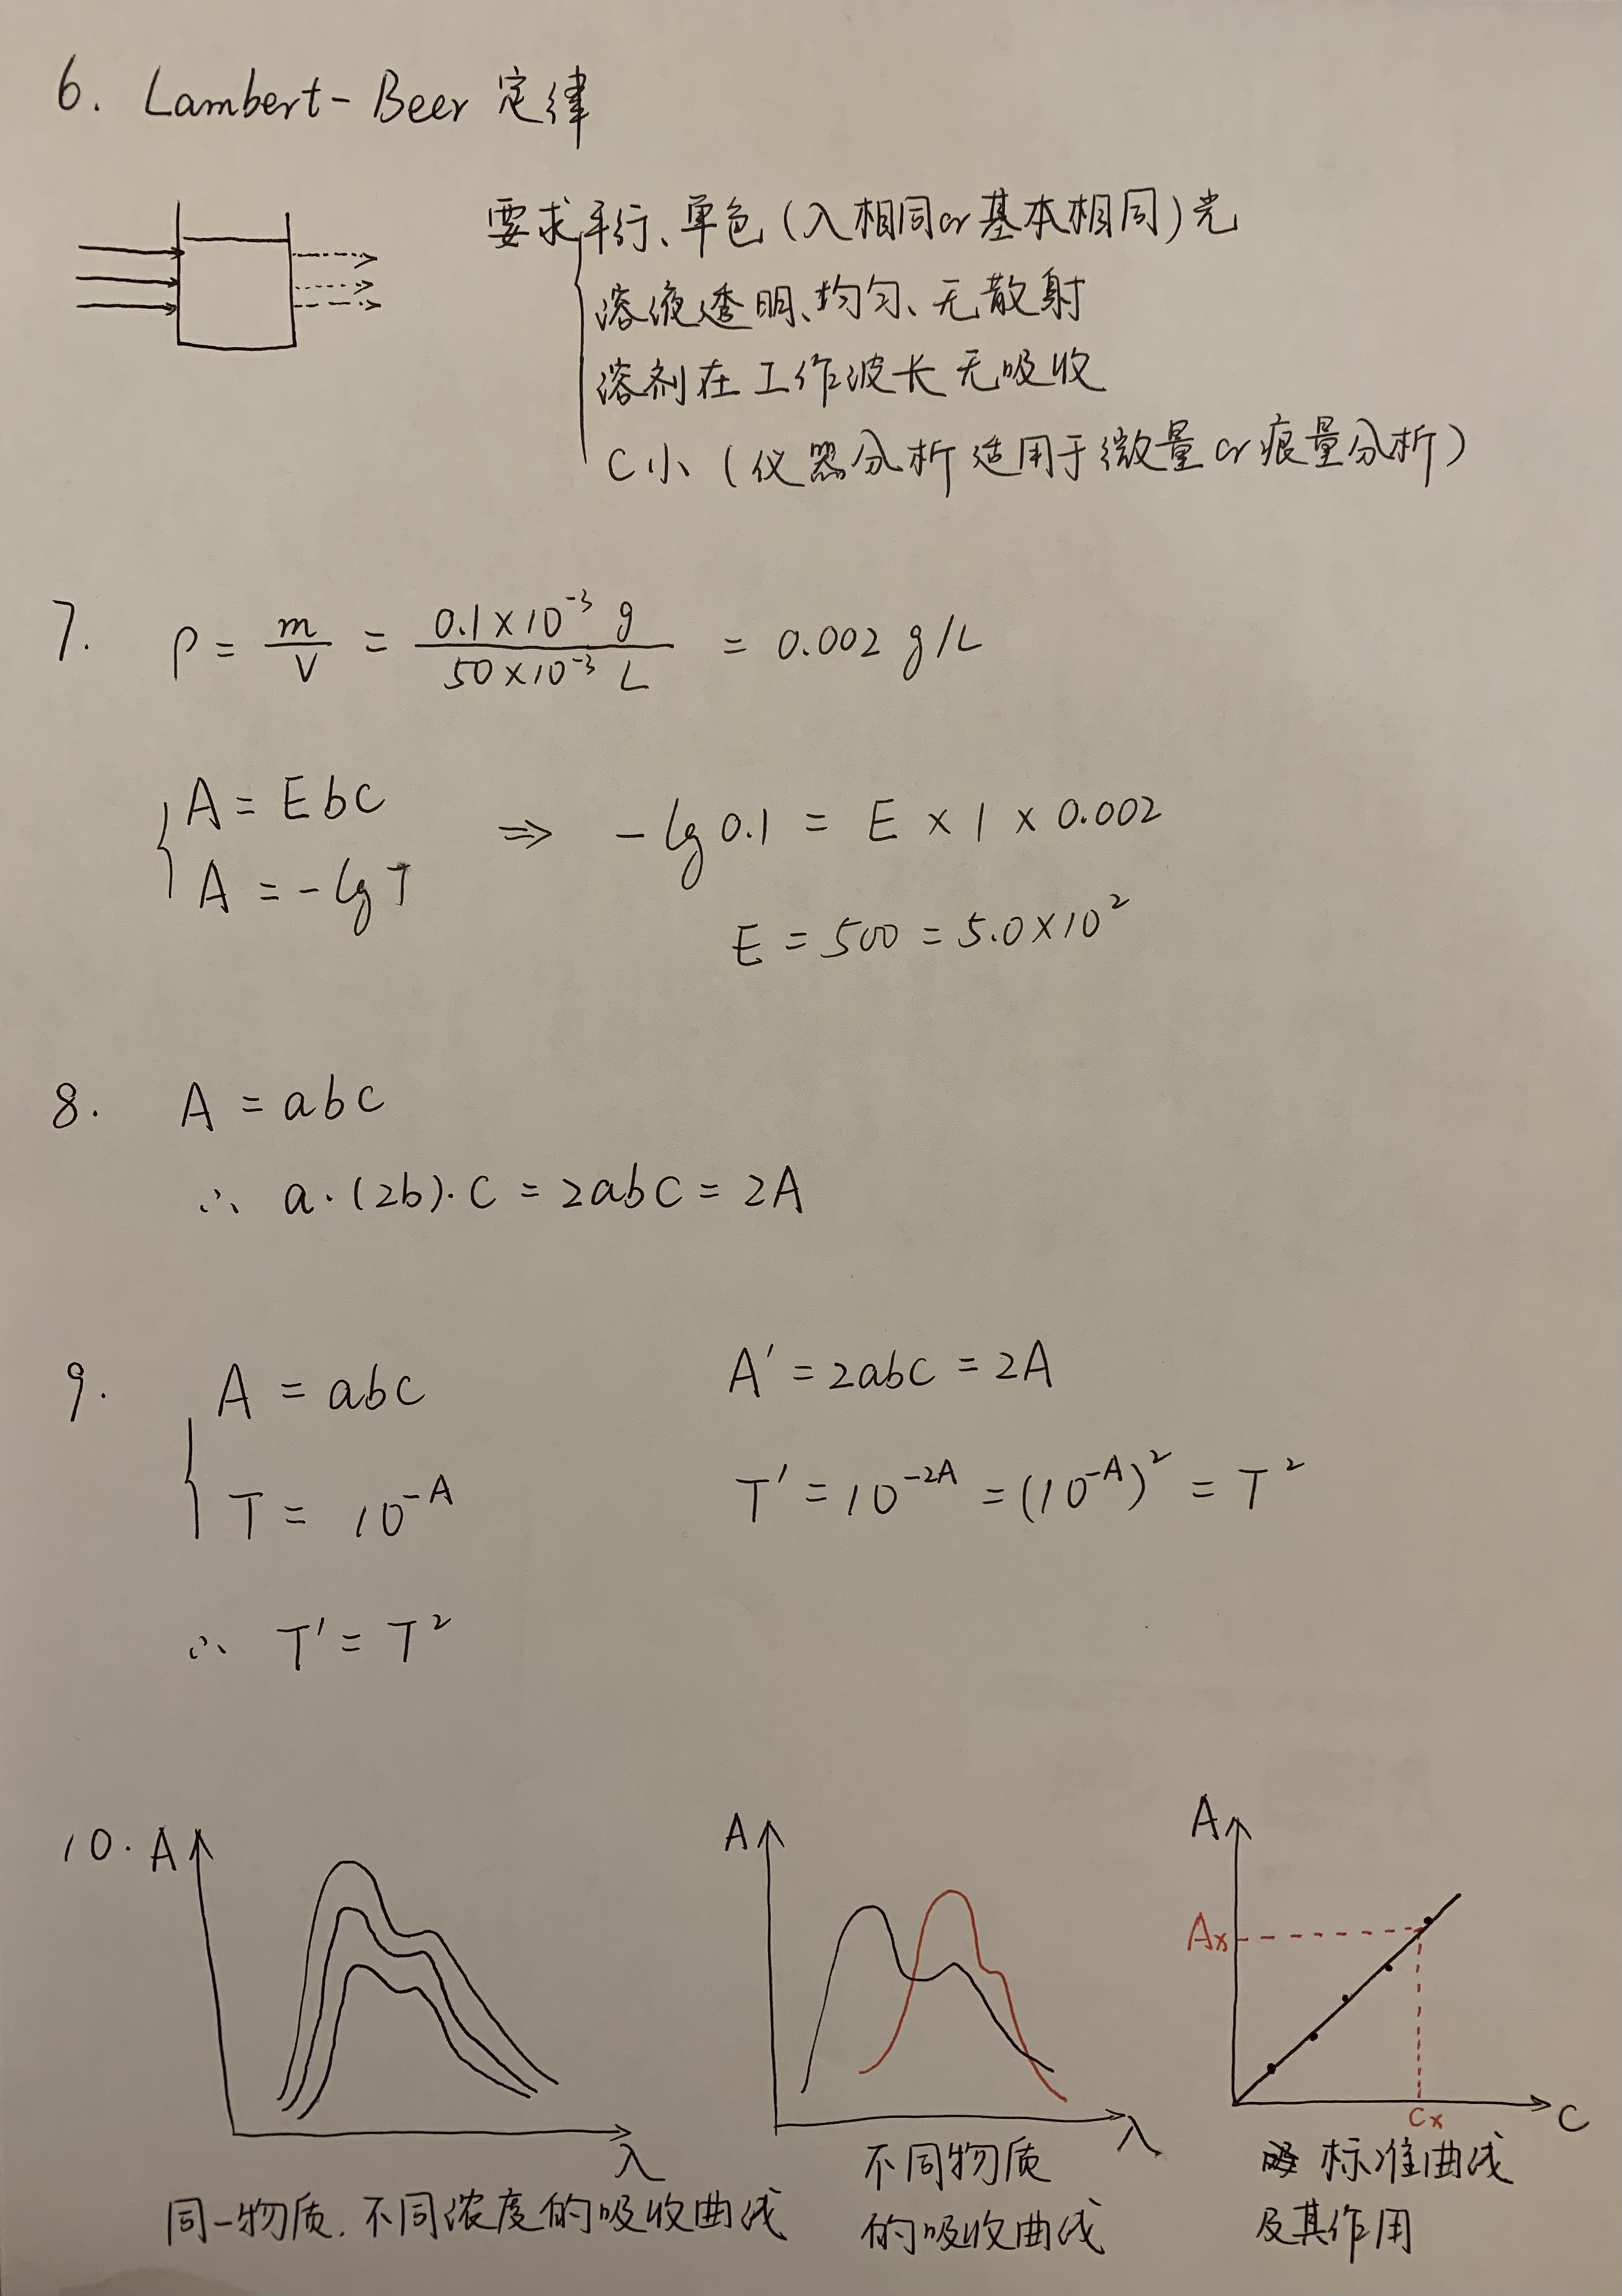 6. Lambert-Beer 定律
要求平行、单色(λ相同or基本相同)光
溶液透明、均匀、无散射
溶剂在工作波长无吸收
C小(仪器分析适用于微量or痕量分析)
7. ρ = m/V = 0.1×10⁻³ g / 50×10⁻³ L = 0.002 g/L
A = Ebc
A = -lgT
⇒ -lg0.1 = E × 1 × 0.002
E = 500 = 5.0×10²
8. A = abc
∴ a·(2b)·c = 2abc = 2A
9. A = abc
T = 10⁻ᴬ
A' = 2abc = 2A
T' = 10⁻²ᴬ = (10⁻ᴬ)² = T²
∴ T' = T²
10. A
λ
同一物质.不同浓度的吸收曲线
A
λ
不同物质
的吸收曲线
A
Ax
Cx
C
标准曲线
及其作用